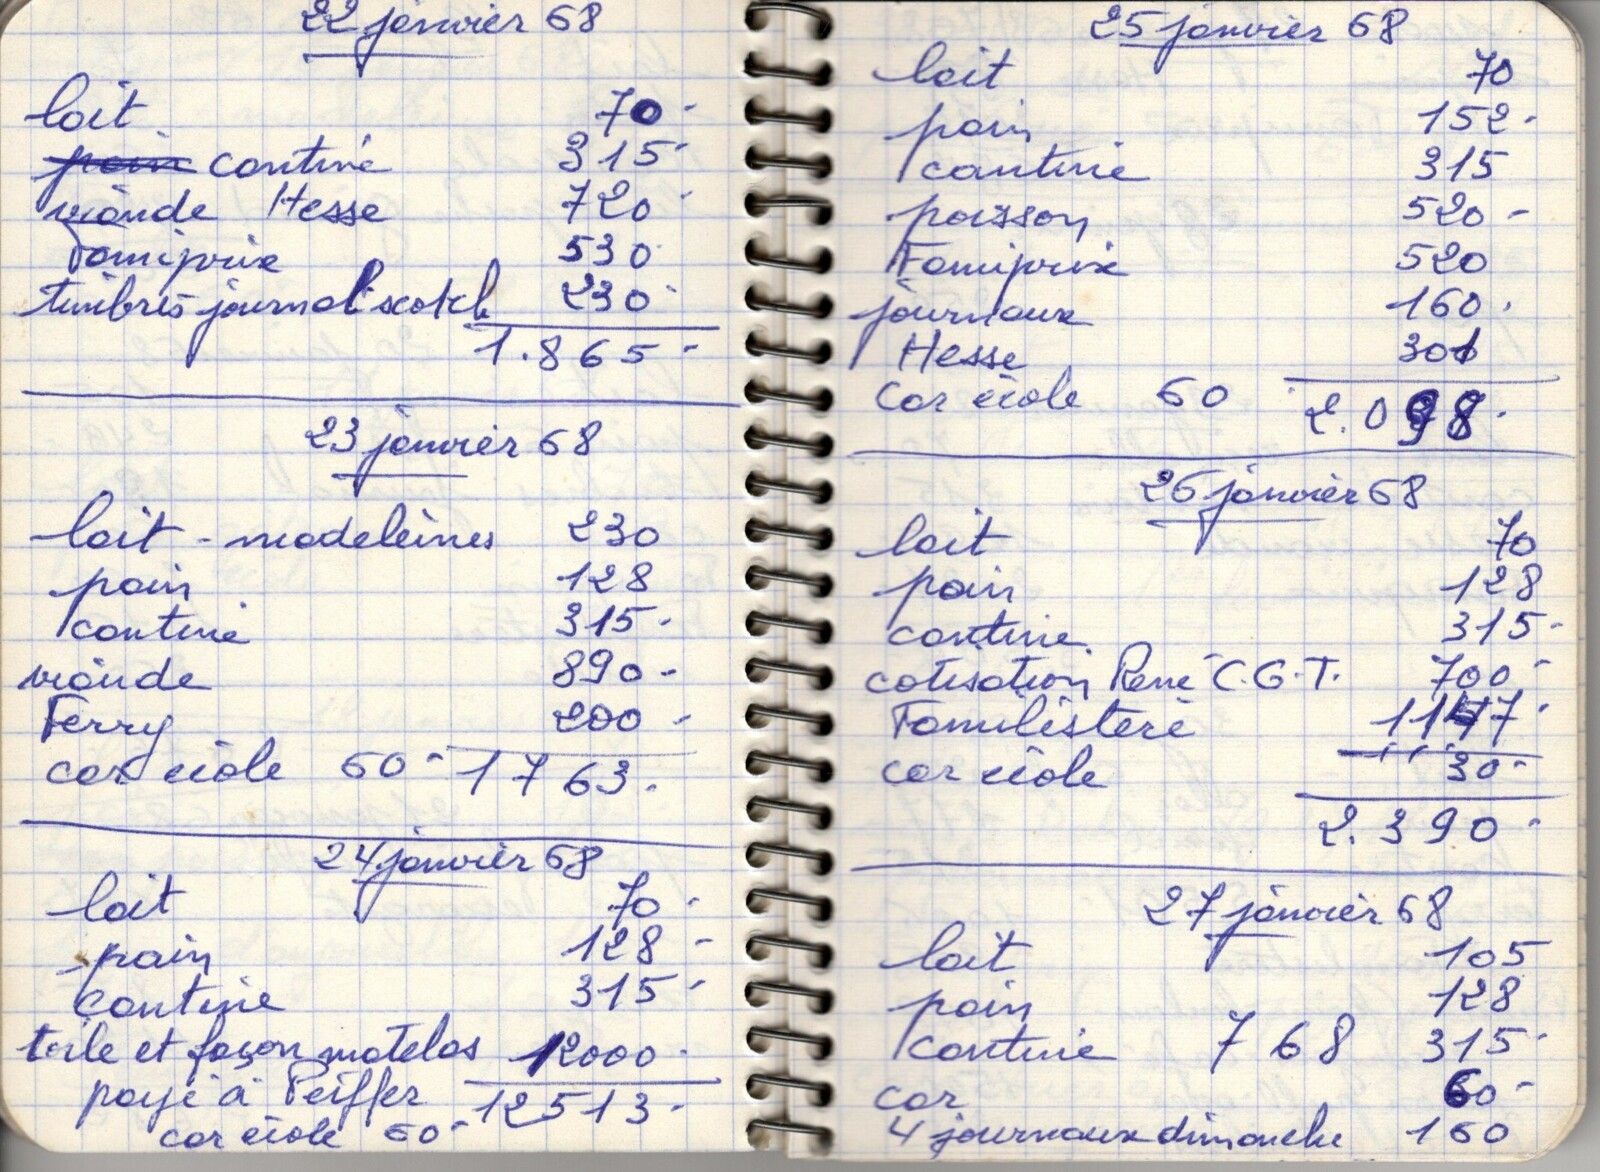 22 janvier 68
lait 70-
pain cantine 315-
viande Hesse 720-
Famiprix 530
timbres journal scotch 230-
1.865-
23 janvier 68
lait - madeleines 230
pain 128
cantine 315-
viande 890-
Ferry 200-
car école 60- 1763.
24 janvier 68
lait 70-
pain 128-
cantine 315-
toile et façon matelas 12000-
payé à Peiffer 12513-
car école 60-
25 janvier 68
lait 70
pain 152-
cantine 315
poisson 520-
Famiprix 520
journaux 160.
Hesse 301
car école 60 2.098-
26 janvier 68
lait 70
pain 128
cantine 315-
cotisation René C.G.T. 700-
Familistère 1147-
car école 30-
2.390-
27 janvier 68
lait 105
pain 128
cantine 768 315-
car 60-
4 journaux dimanche 160